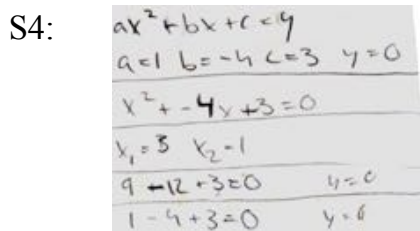 S4:
ax² + bx + c = y
a = 1 b = -4 c = 3 y = 0
x² + -4x + 3 = 0
x₁ = 3 x₂ = 1
9 - 12 + 3 = 0 y = 0
1 - 4 + 3 = 0 y = 0